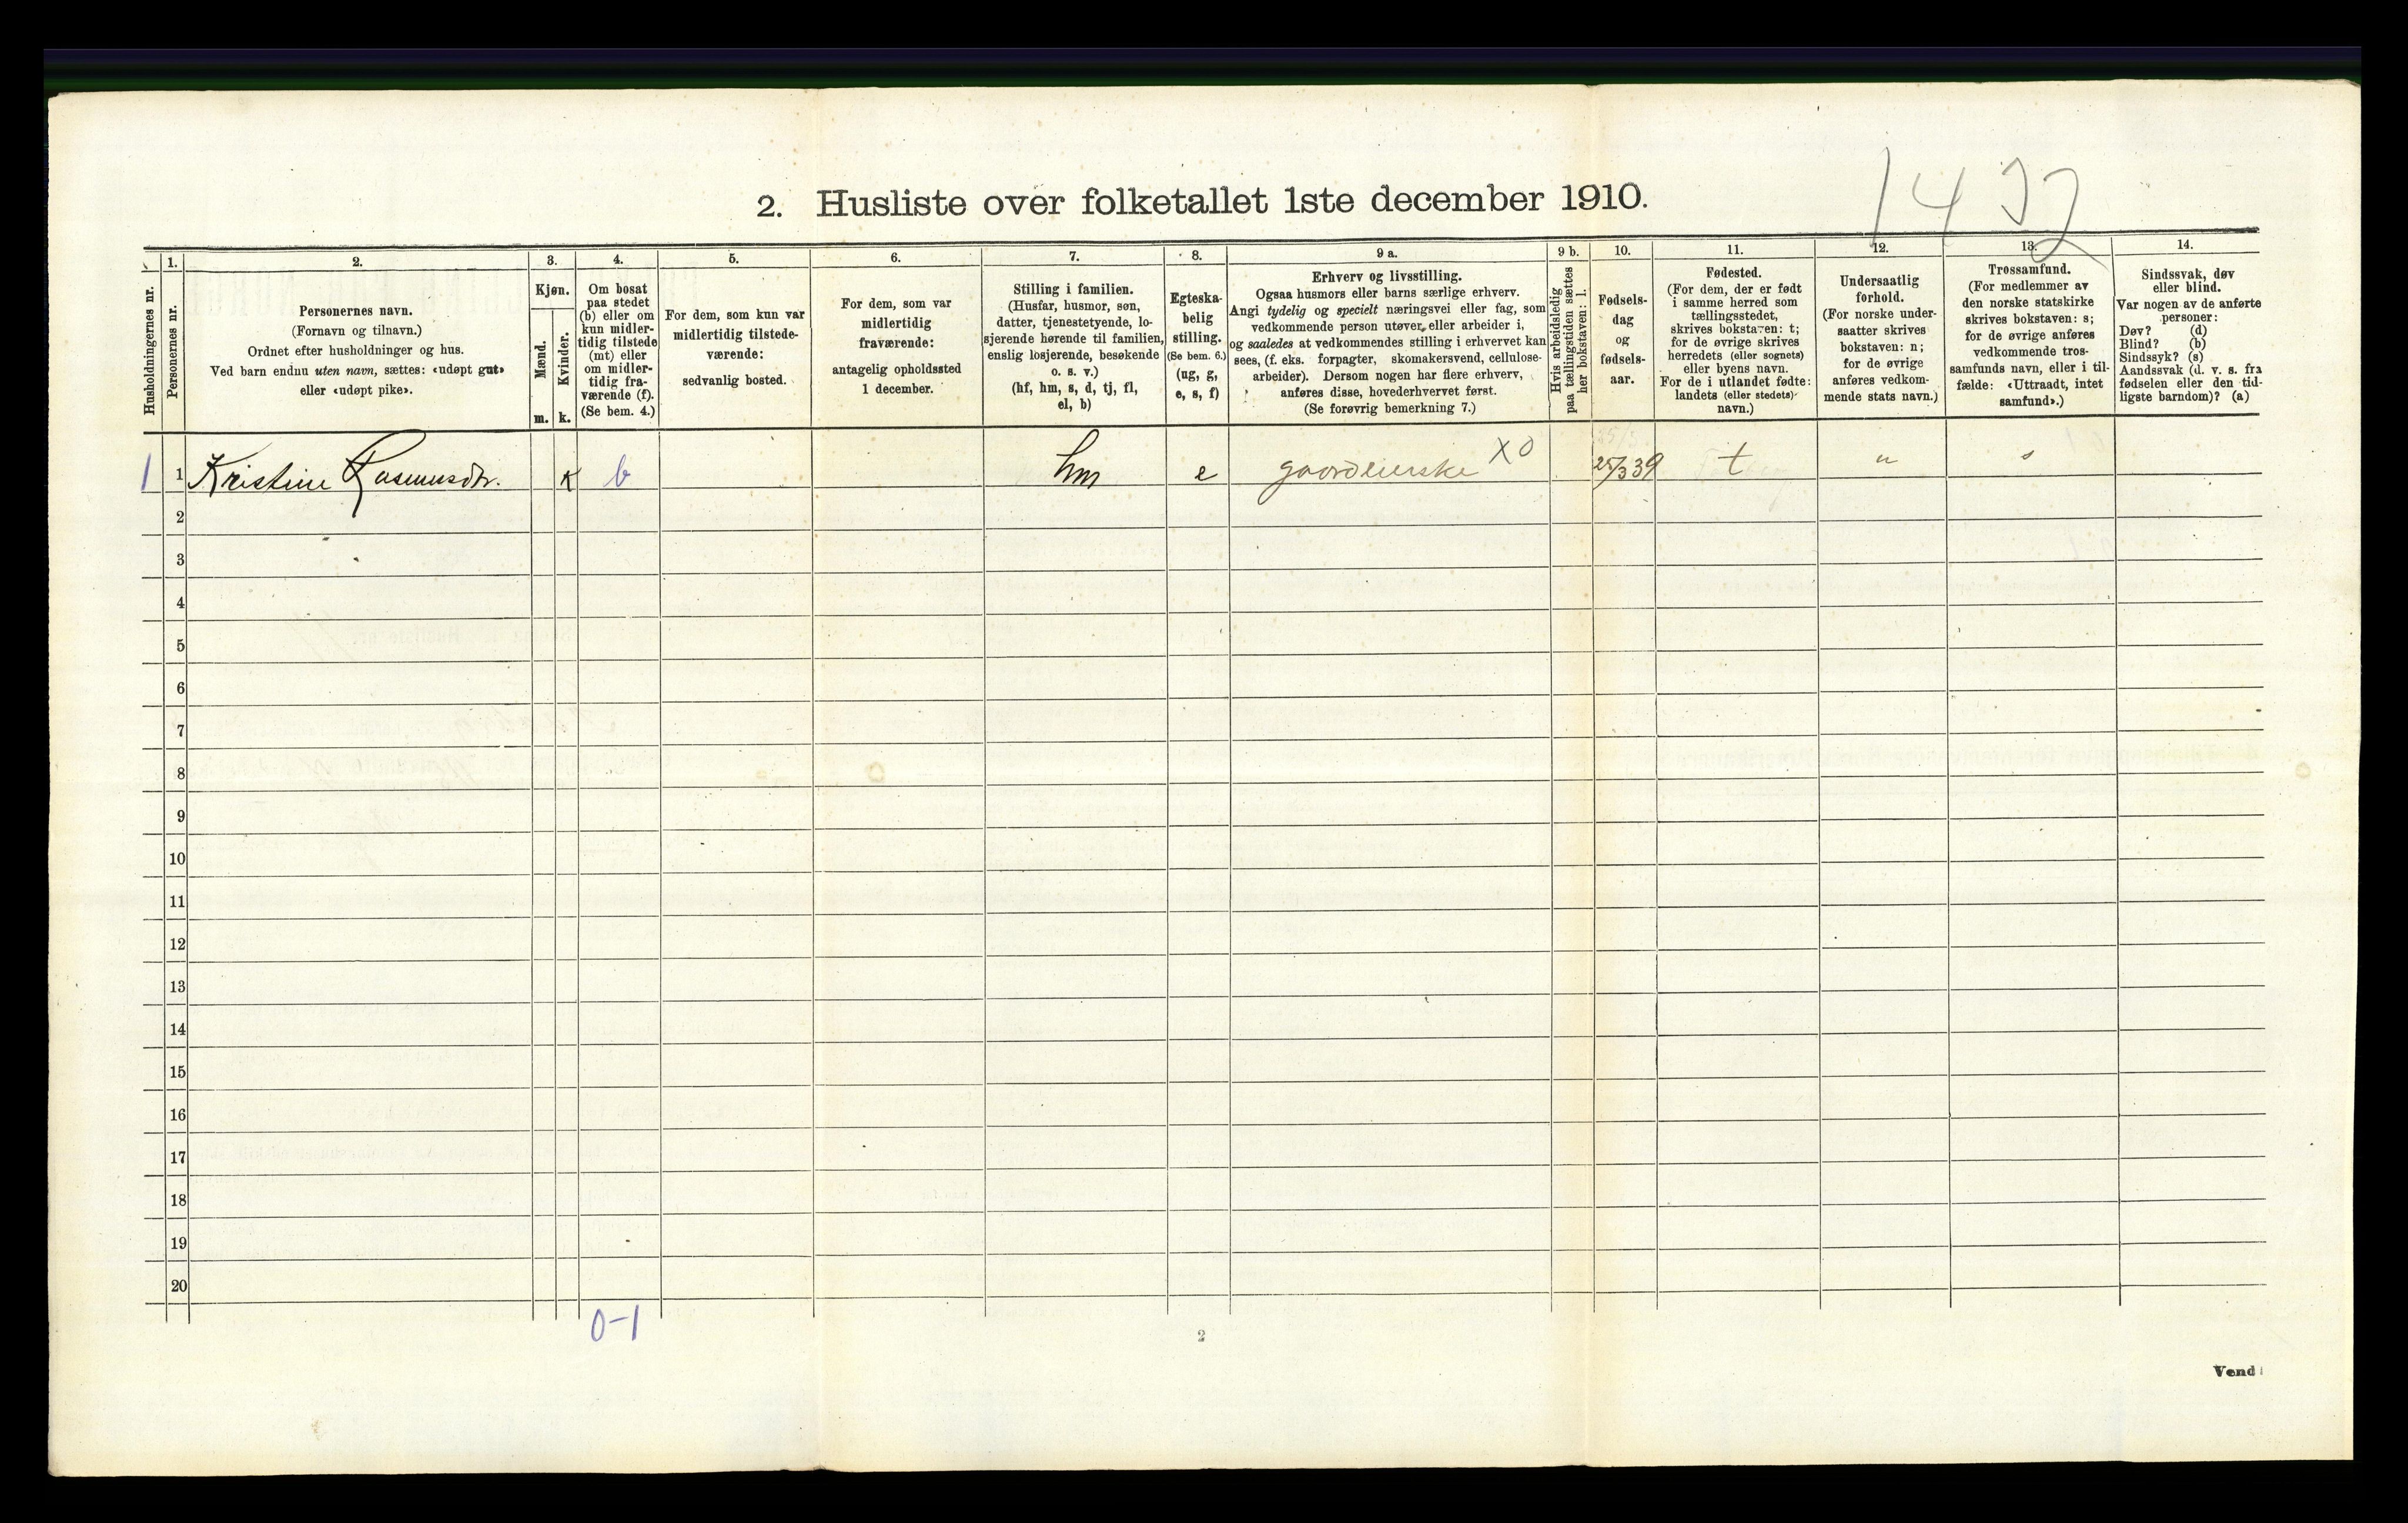 1432
2. Husliste over folketallet 1ste december 1910.
Husholdningernes nr.
1.
Personernes nr.
2.
Personernes navn.
(Fornavn og tilnavn.)
Ordnet efter husholdninger og hus.
Ved barn endnu uten navn, sættes: «udøpt gut»
eller «udøpt pike».
3.
Kjøn.
Mænd.
Kvinder.
m. k.
4.
Om bosat
paa stedet
(b) eller om
kun midler-
tidig tilstede
(mt) eller
om midler-
tidig fra-
værende (f).
(Se bem. 4.)
5.
For dem, som kun var
midlertidig tilstede-
værende:
sedvanlig bosted.
6.
For dem, som var
midlertidig
fraværende:
antagelig opholdssted
1 december.
7.
Stilling i familien.
(Husfar, husmor, søn,
datter, tjenestetyende, lo-
sjerende hørende til familien,
enslig losjerende, besøkende
o. s. v.)
(hf, hm, s, d, tj, fl,
el, b)
8.
Egteska-
belig
stilling.
(Se bem. 6.)
(ug, g,
e, s, f)
9 a.
Erhverv og livsstilling.
Ogsaa husmors eller barns særlige erhverv.
Angi tydelig og specielt næringsvei eller fag, som
vedkommende person utøver eller arbeider i,
og saaledes at vedkommendes stilling i erhvervet kan
sees, (f. eks. forpagter, skomakersvend, cellulose-
arbeider). Dersom nogen har flere erhverv,
anføres disse, hovederhvervet først.
(Se forøvrig bemerkning 7.)
9 b.
Hvis arbeidsledig
paa tællingstiden sættes
her bokstaven: l.
10.
Fødsels-
dag
og
fødsels-
aar.
11.
Fødested.
(For dem, der er født
i samme herred som
tællingsstedet,
skrives bokstaven: t;
for de øvrige skrives
herredets (eller sognets)
eller byens navn.
For de i utlandet fødte:
landets (eller stedets)
navn.)
12.
Undersaatlig
forhold.
(For norske under-
saatter skrives
bokstaven: n;
for de øvrige
anføres vedkom-
mende stats navn.)
13.
Trossamfund.
(For medlemmer av
den norske statskirke
skrives bokstaven: s;
for de øvrige anføres
vedkommende tros-
samfunds navn, eller i til-
fælde: «Uttraadt, intet
samfund».)
14.
Sindssvak, døv
eller blind.
Var nogen av de anførte
personer:
Døv? (d)
Blind? (b)
Sindssyk? (s)
Aandssvak (d. v. s. fra
fødselen eller den tid-
ligste barndom)? (a)
1 1 Kristine Rasmusdtr. k b hm e gaardeierske X0 25/3 39 t n s
2
3
4
5
6
7
8
9
10
11
12
13
14
15
16
17
18
19
20
0-1
2
Vend